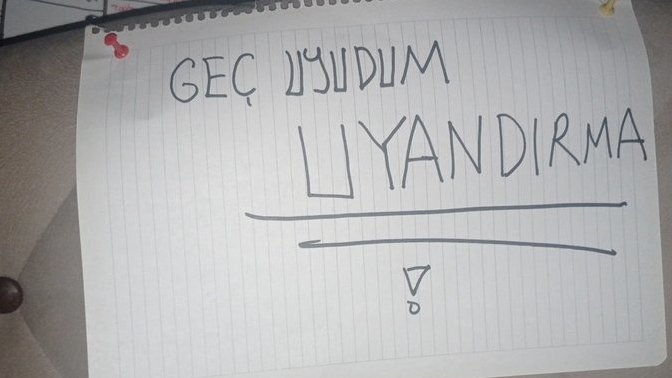 GEÇ UYUDUM
UYANDIRMA
!